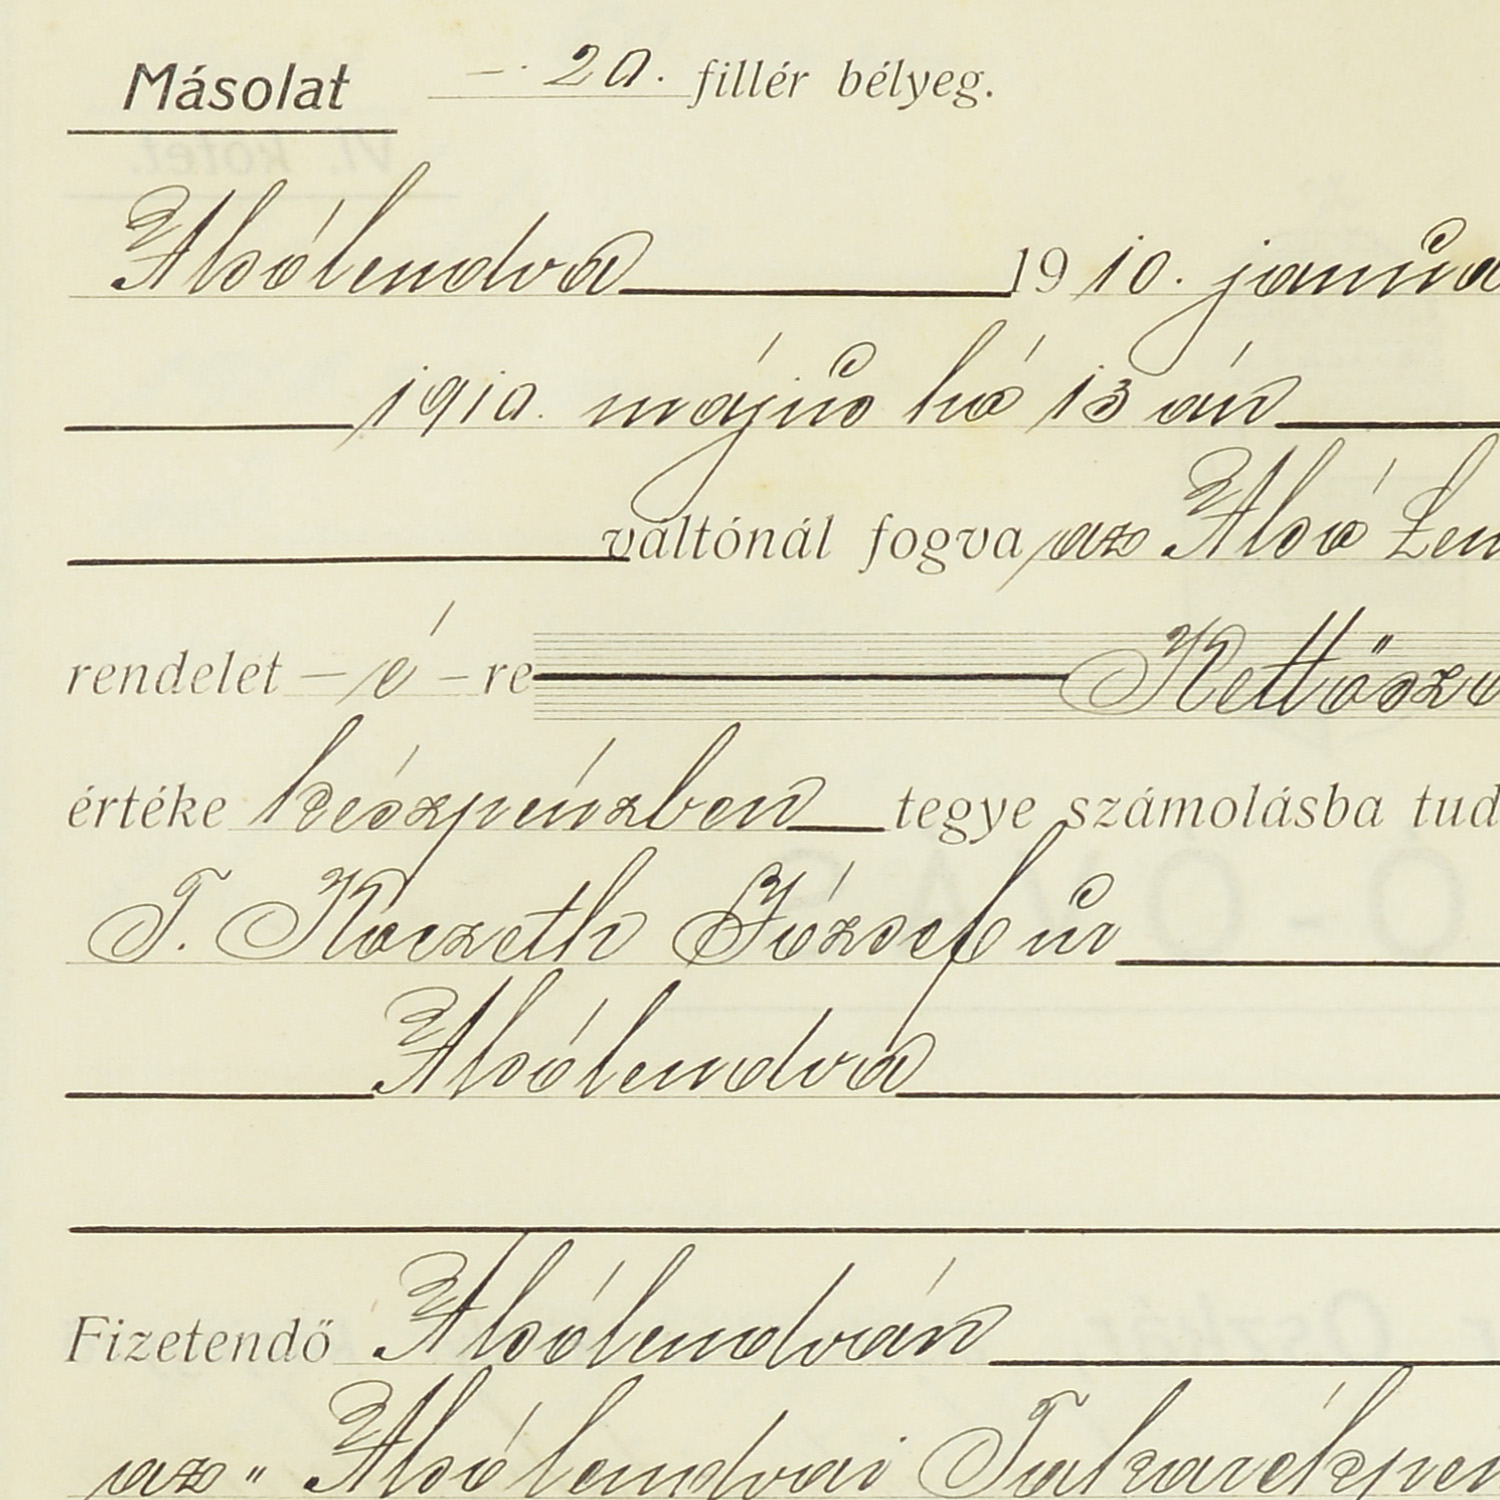 Másolat —· 20. fillér bélyeg.
Alsólendva 1910. janua
1910. május hó 13 án
váltónál fogva az Alsó Len
rendelet – é – re Kettősz
értéke készpénzben tegye számolásba tud
T. Koczeth József úr
Alsólendva
Fizetendő Alsólendván
az „ Alsólendvai Takarékpén